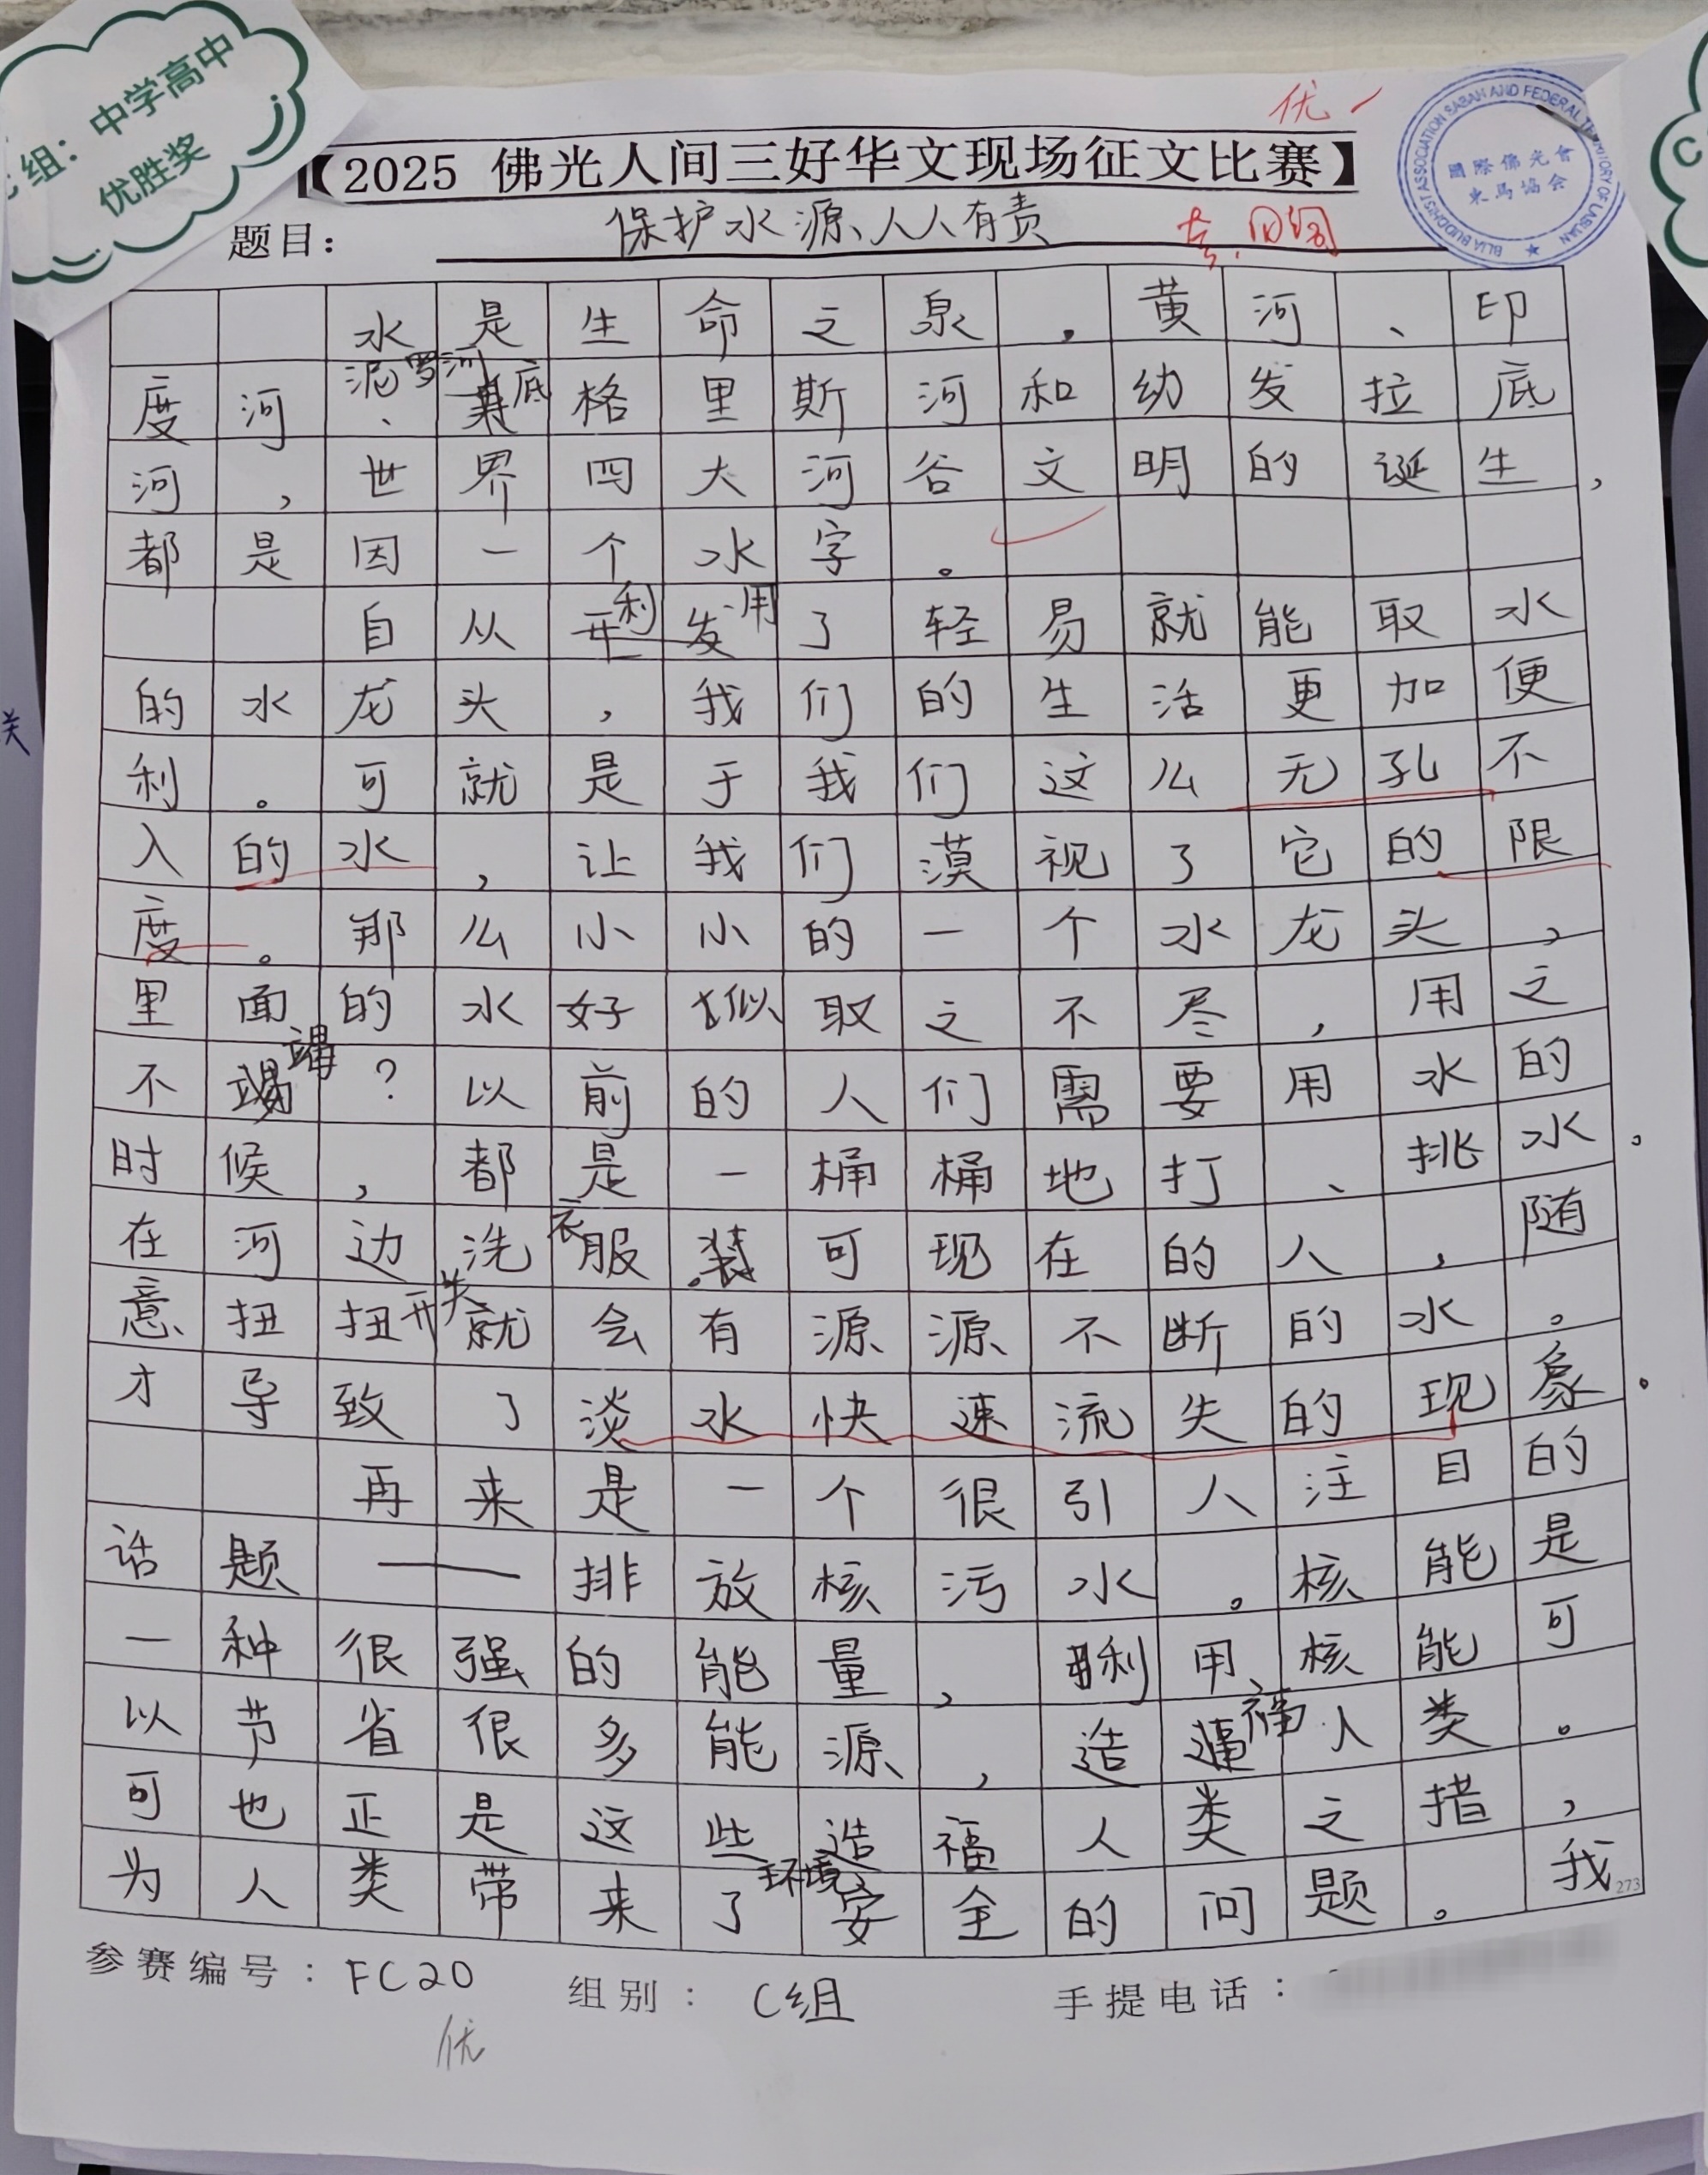 组：中学高中
优胜奖
优
【2025 佛光人间三好华文现场征文比赛】
BLIA BUDDHIST ASSOCIATION SABAH AND FEDERAL TERRITORY OF LABUAN
國際佛光會
東馬協会
题目：保护水源、人人有责
水是生命之泉，黄河、印
度河、泥罗河、底格里斯河和幼发拉底
河，世界四大河谷文明的诞生，
都是因一个水字。
自从利用了轻易就能取水
的水龙头，我们的生活更加便
利。可就是于我们这么无孔不
入的水，让我们漠视了它的限
度。那么小小的一个水龙头，
里面的水好似取之不尽，用之
不竭？以前的人们需要用水的
时候，都是一桶桶地打、挑水。
在河边洗衣服。可现在的人，随
意扭扭开关就会有源源不断的水。
才导致了淡水快速流失的现象。
再来是一个很引人注目的
话题——排放核污水。核能是
一种很强的能量，利用核能可
以节省很多能源，造福人类。
可也正是这些造福人类之措，
为人类带来了环境安全的问题。我
273
参赛编号：FC20 组别：C组 手提电话：
优